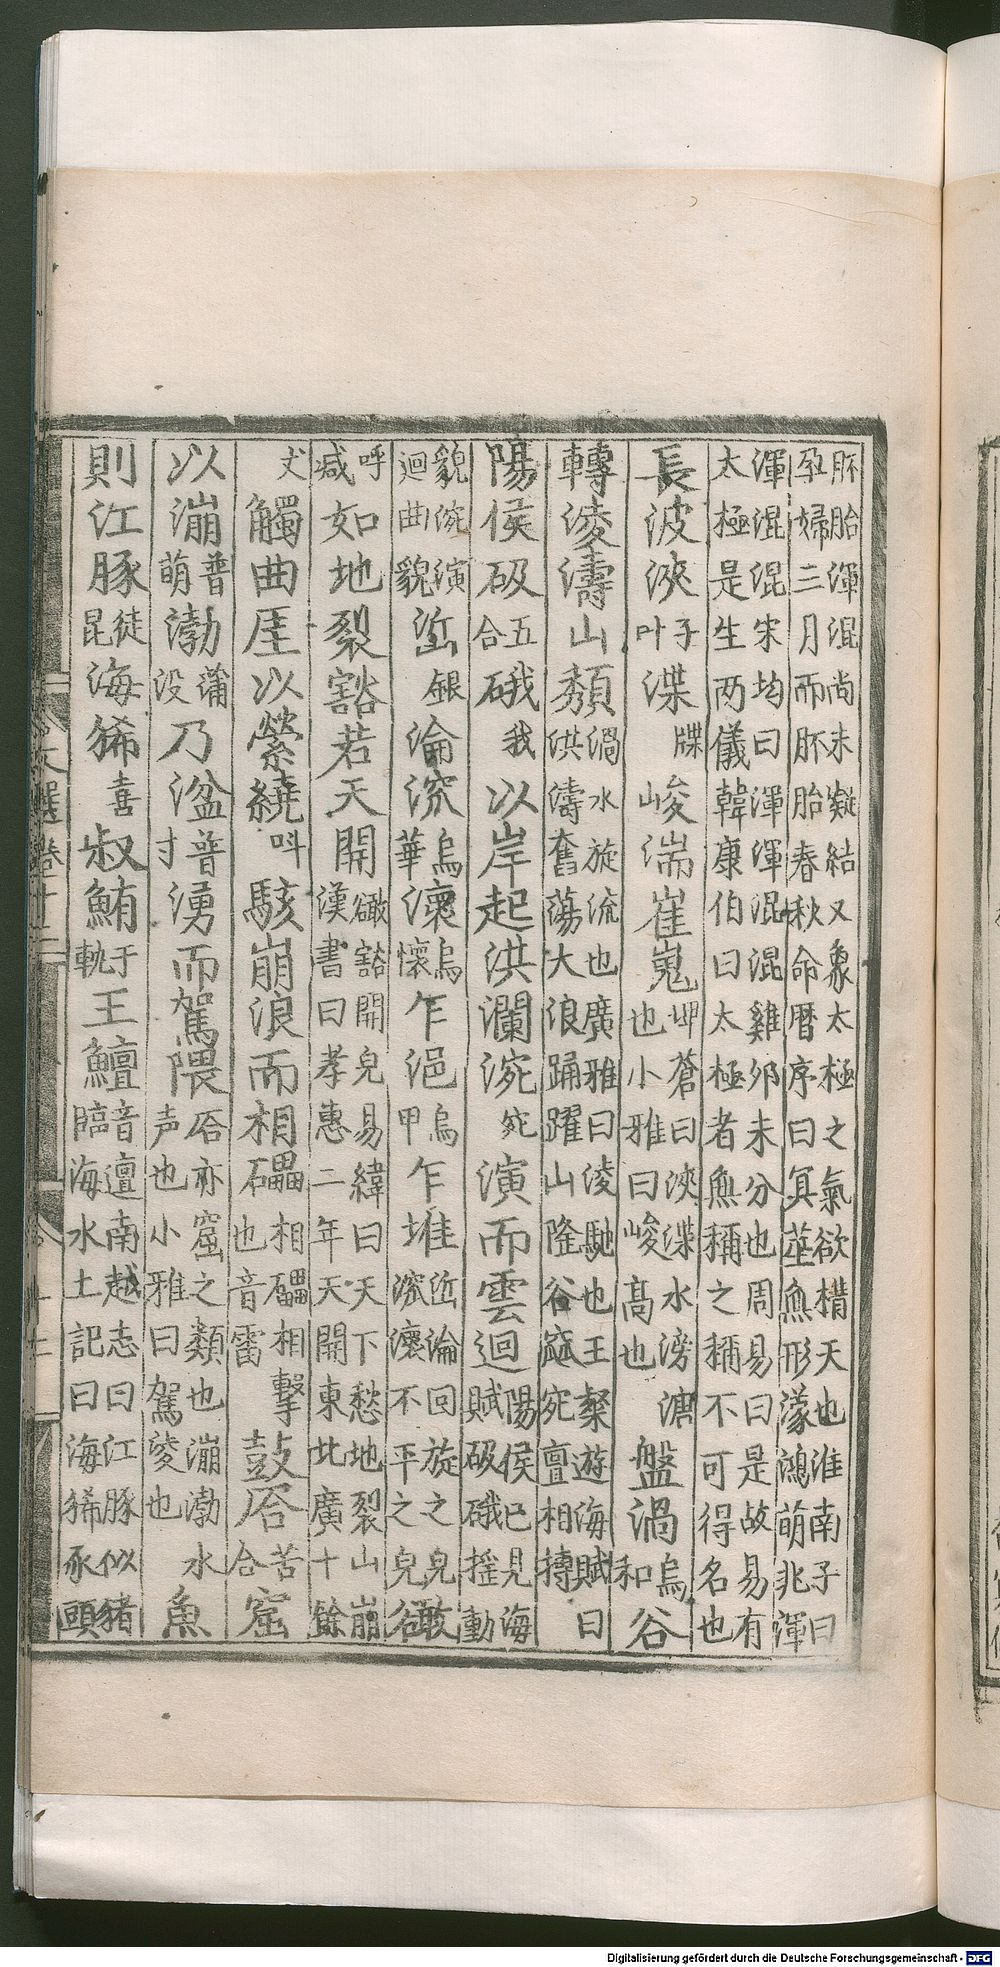 胚胎渾混尚未凝結又象太極之氣欲構天也淮南子曰
孕婦三月而胚胎春秋命暦序曰冥莖無形濛鴻萌兆渾
渾混混宋均曰渾渾混混雞卵未分也周易曰是故易有
太極是生两儀韓康伯曰太極者無稱之稱不可得名也
長波浹子叶渫牒峻湍崔嵬岬蒼曰浹渫水滂溏也小雅曰峻髙也盤渦烏和谷
轉淩濤山頽渦水旋流也廣雅曰淩馳也王粲遊海賦曰洪濤奮蕩大浪踊躍山隆谷窳宛亶相搏
陽侯砐五合硪我以岸起洪瀾涴宛演而雲迴陽侯已見海賦砐硪搖動
貌涴演迴曲貌㳡銀淪溛烏華瀤烏懷乍浥烏甲乍堆㳡淪回旋之皃溛瀤不平之皃豃
呼臧如地裂豁若天開豃豁開皃易緯曰天下愁地裂山崩漢書曰孝惠二年天開東北廣十餘
丈觸曲厓以縈繞呌駭崩浪而相礧相礧相擊也音雷鼓㕎苦合窟
以漰普萌渤蒲没乃湓普寸湧而駕隈㕎亦窟之類也漰渤水声也小雅曰駕淩也魚
則江豚徒昆海狶喜叔鮪于軌王鱣音亶南越志曰江豚似猪臨海水土記曰海狶豕頭
文選卷十二
Digitalisierung gefördert durch die Deutsche Forschungsgemeinschaft - DFG